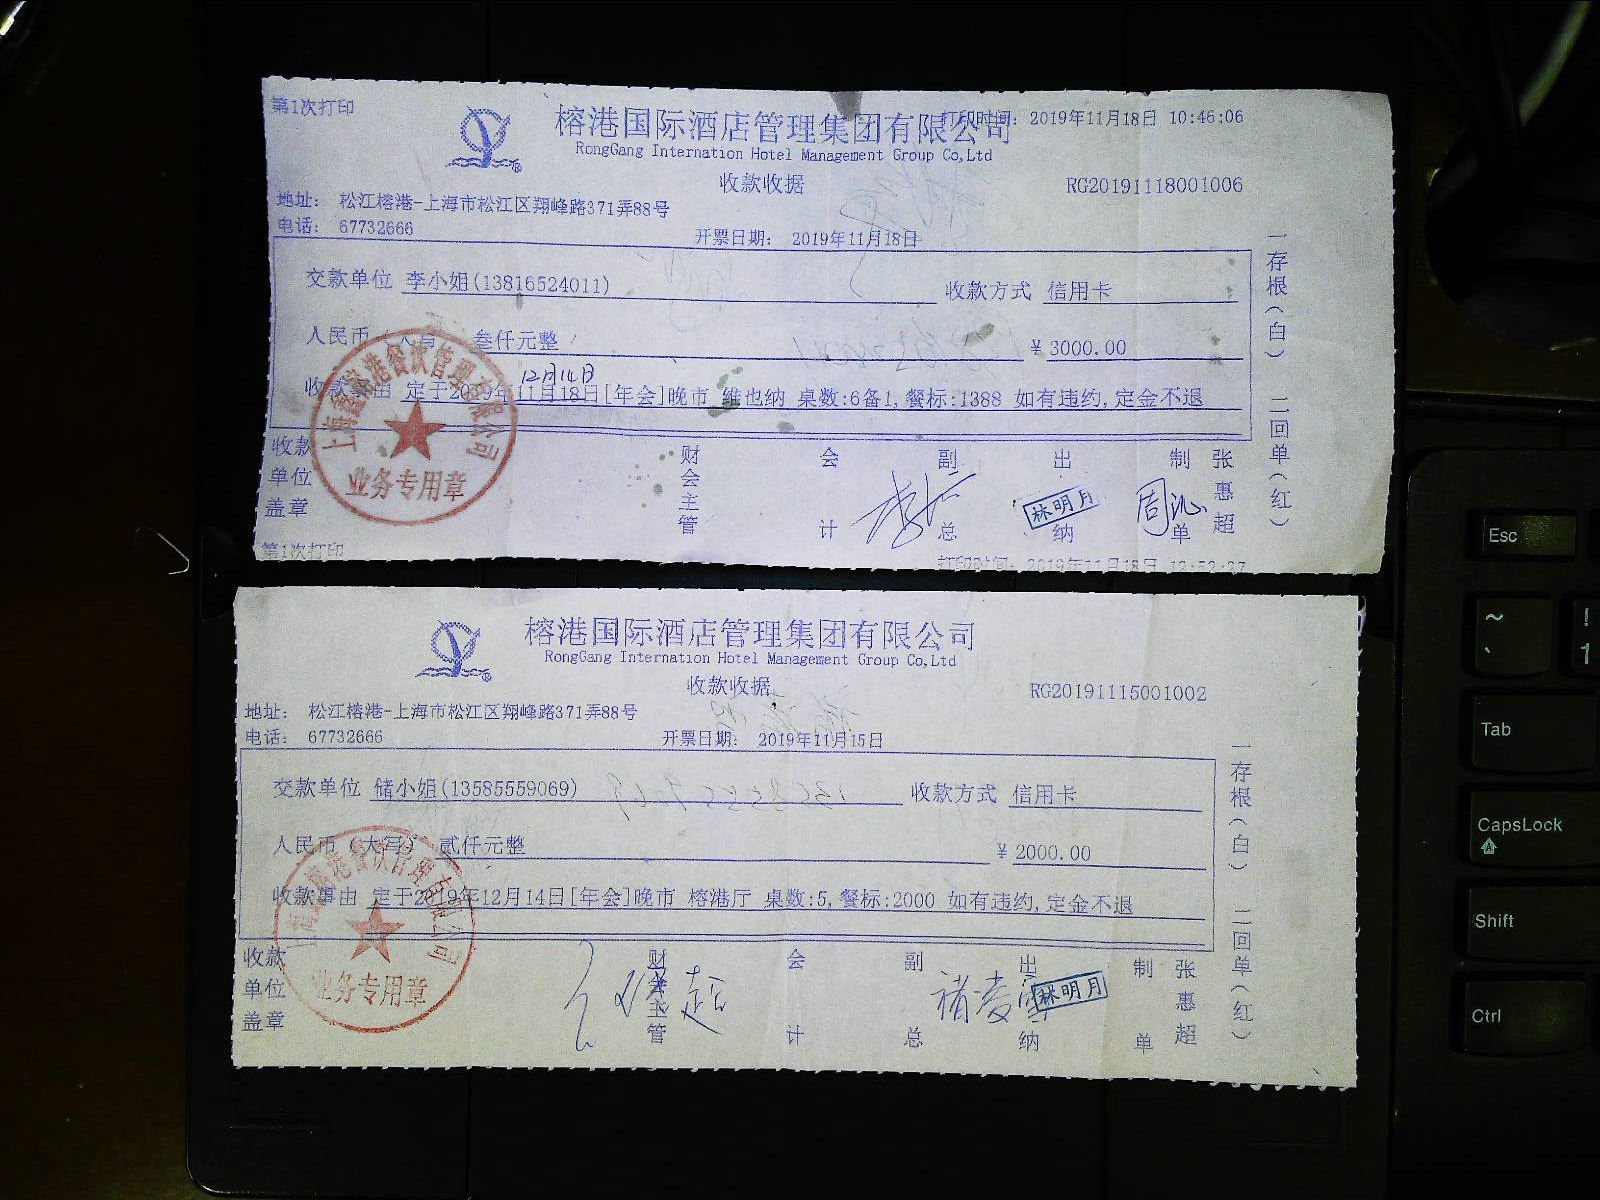 第1次打印
打印时间: 2019年11月18日 10:46:06
榕港国际酒店管理集团有限公司
RongGang Internation Hotel Management Group Co,Ltd
收款收据
RG20191118001006
地址: 松江榕港-上海市松江区翔峰路371弄88号
电话: 67732666
开票日期: 2019年11月18日
交款单位 李小姐(13816524011)
收款方式 信用卡
人民币(大写) 叁仟元整
¥ 3000.00
12月14日
收款事由 定于2019年11月18日[年会]晚市 维也纳 桌数:6备1,餐标:1388 如有违约,定金不退
一存根(白) 二回单(红)
业务专用章
收款单位盖章
财会主管
会计
副总
出纳
林明月
制单
张惠超
第1次打印
打印时间: 2019年11月18日 12:52:27
榕港国际酒店管理集团有限公司
RongGang Internation Hotel Management Group Co,Ltd
收款收据
RG20191115001002
地址: 松江榕港-上海市松江区翔峰路371弄88号
电话: 67732666
开票日期: 2019年11月15日
交款单位 储小姐(13585559069)
收款方式 信用卡
人民币(大写) 贰仟元整
¥ 2000.00
收款事由 定于2019年12月14日[年会]晚市 榕港厅 桌数:5,餐标:2000 如有违约,定金不退
一存根(白) 二回单(红)
业务专用章
收款单位盖章
财会主管
会计
副总
出纳
林明月
制单
张惠超
Esc
~
`
!
1
Tab
CapsLock
A
Shift
Ctrl